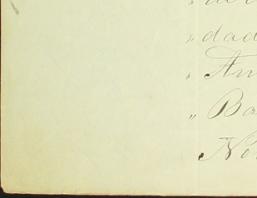 " dad
" An
„ Ba
No